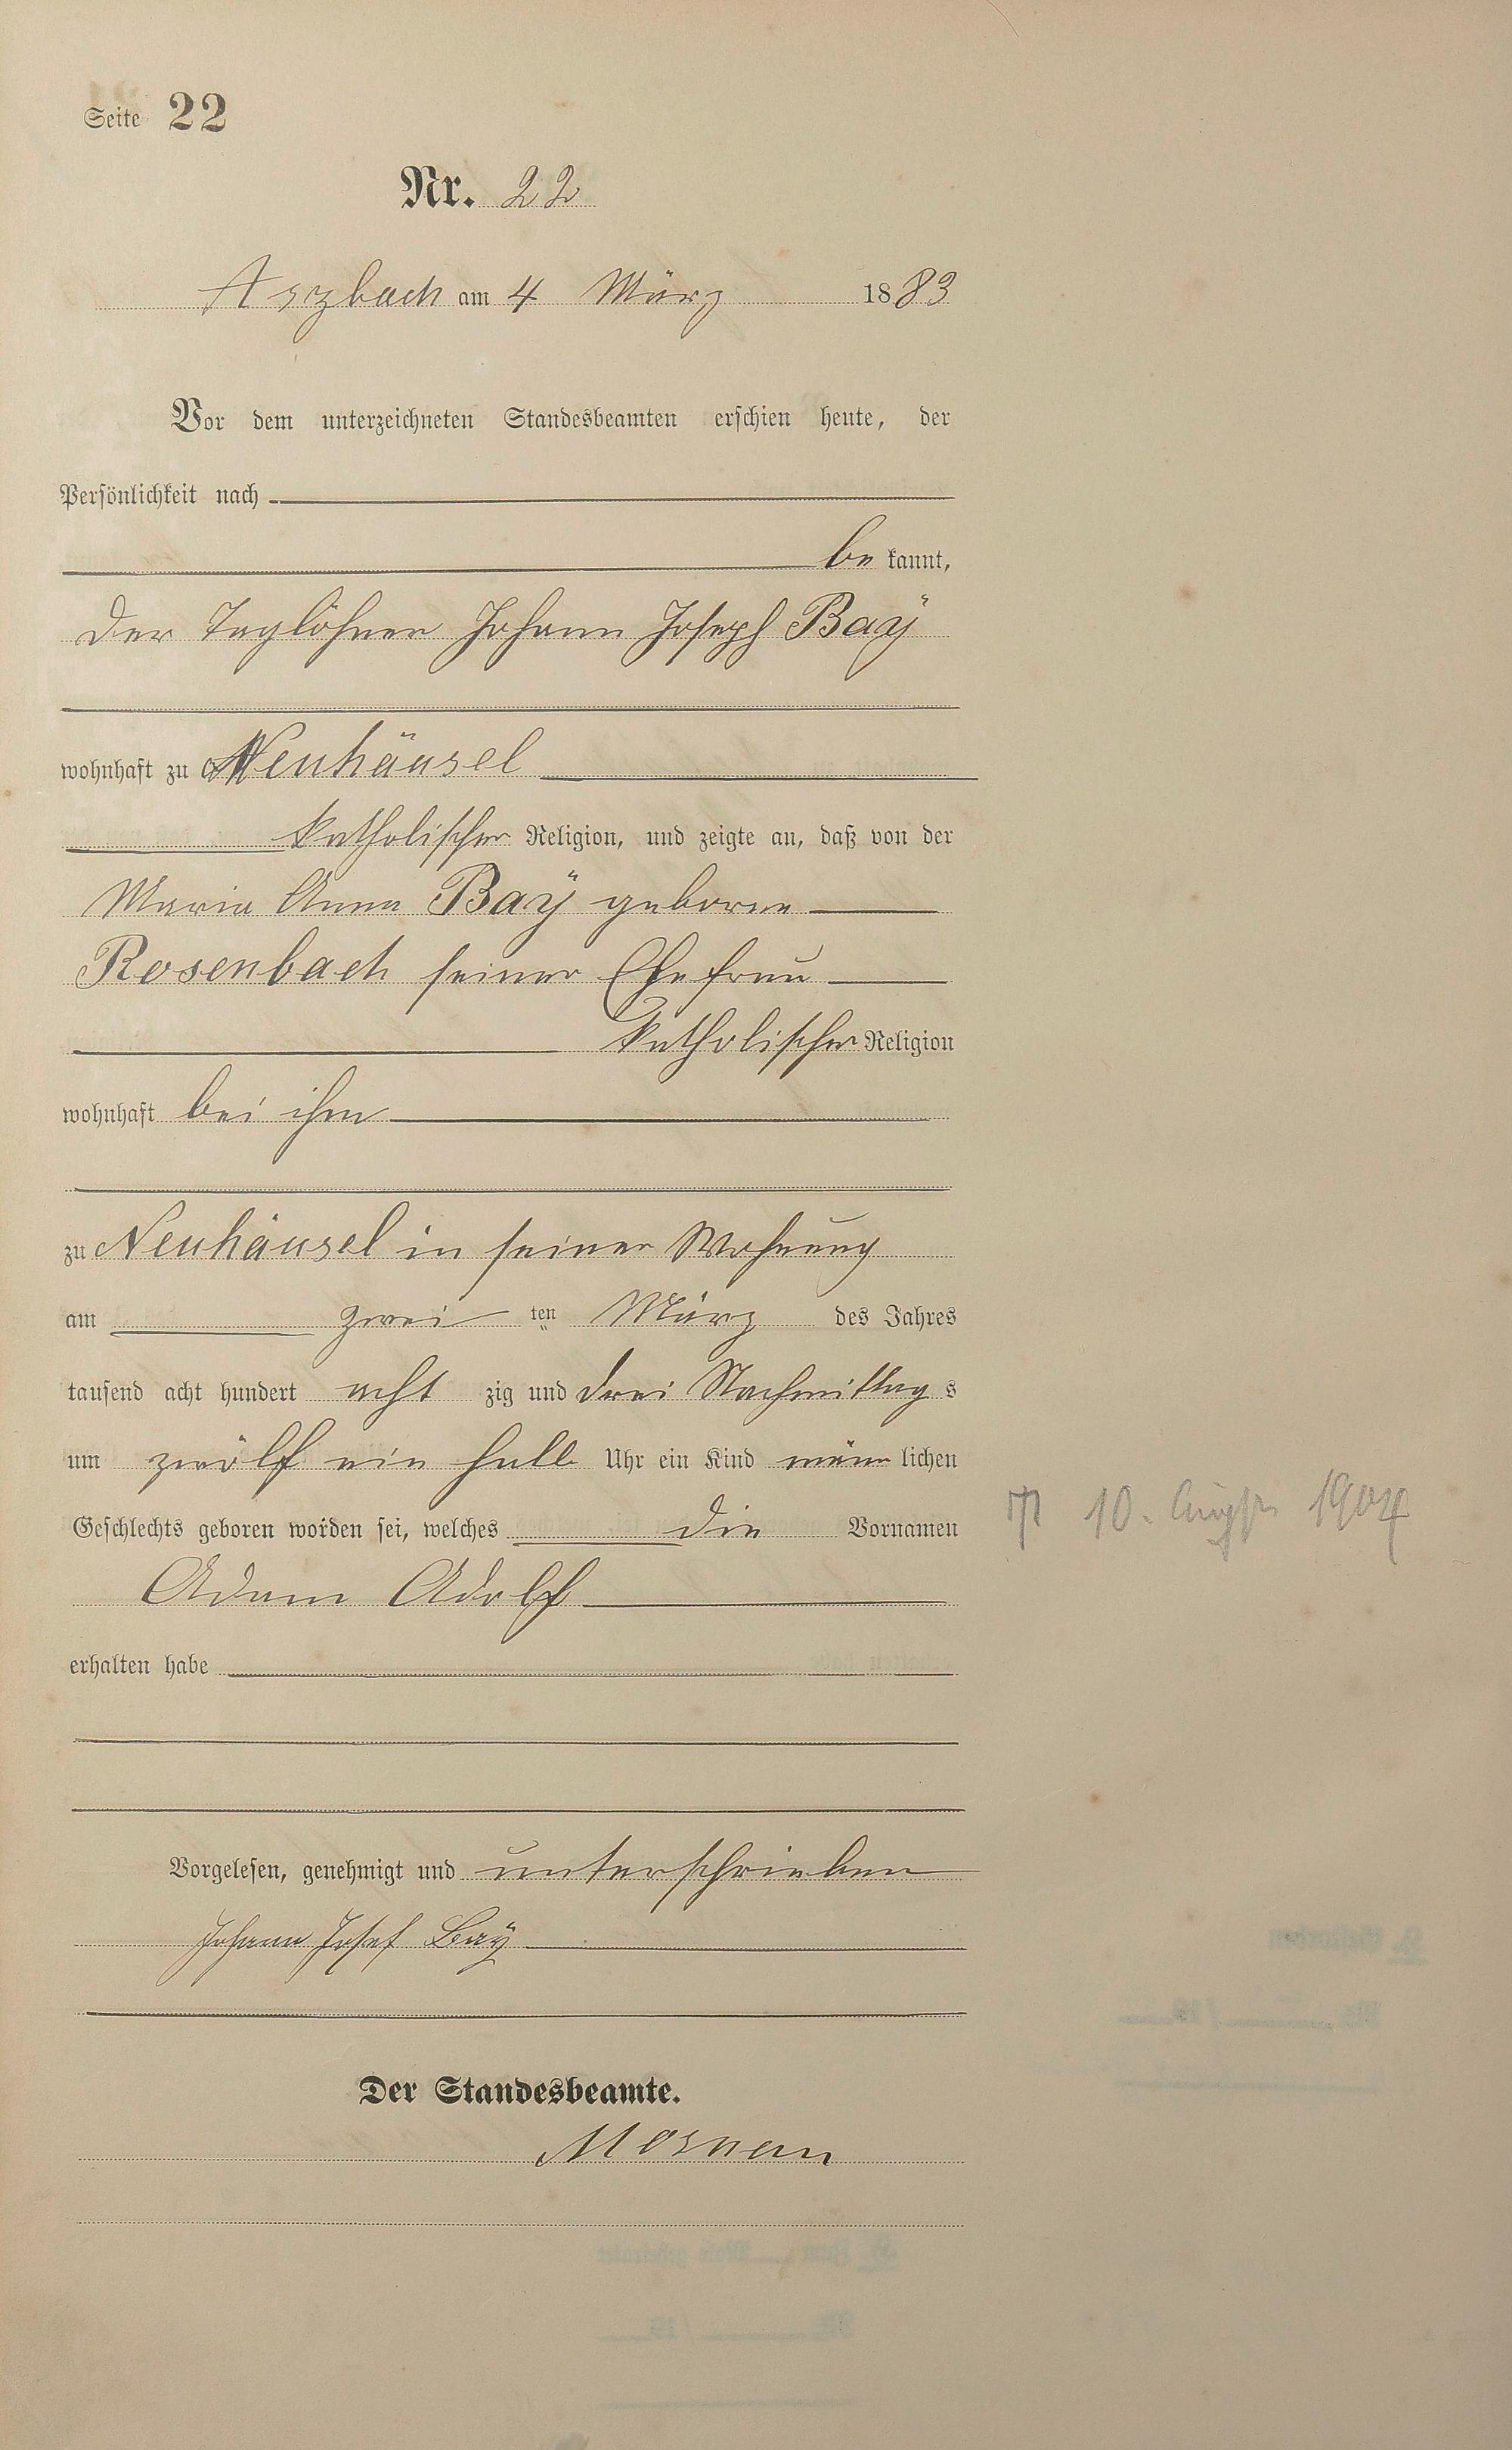 Seite 22
Nr. 22
Arzbach am 4 März 1883
Vor dem unterzeichneten Standesbeamten erschien heute, der
Persönlichkeit nach
be kannt,
der Taglöhner Johann Joseph Baÿ
wohnhaft zu Neuhäusel
katholischer Religion, und zeigte an, daß von der
Maria Anna Baÿ geborne
Rosenbach seiner Ehefrau
katholischer Religion
wohnhaft bei ihm
zu Neuhäusel in seiner Wohnung
am zwei ten März des Jahres
tausend acht hundert acht zig und drei Nachmittag s
um zwölf ein halb Uhr ein Kind männ lichen
Geschlechts geboren worden sei, welches die Vornamen
10. August 1904
Adam Adolf
erhalten habe
Vorgelesen, genehmigt und unterschrieben
Johann Josef Baÿ
Der Standesbeamte.